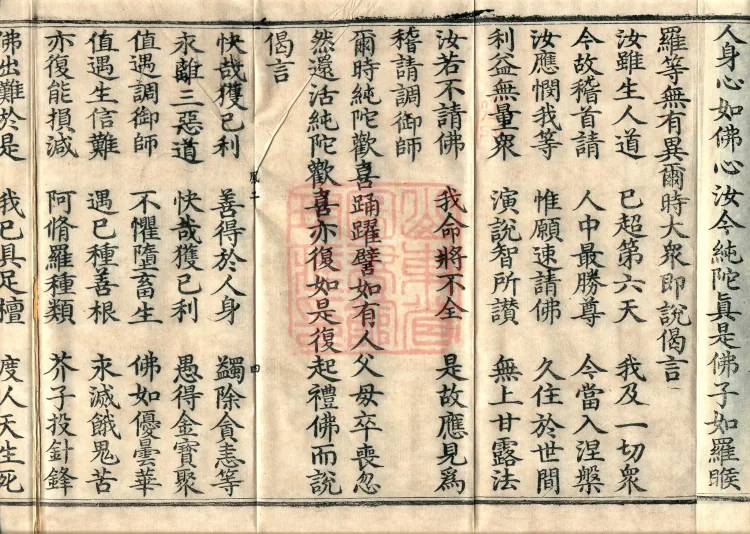 人身心如佛心汝今純陀眞是佛子如羅睺
羅等無有異爾時大衆即說偈言
汝雖生人道 已超第六天 我及一切衆
今故稽首請 人中最勝尊 今當入涅槃
汝應憫我等 惟願速請佛 久住於世間
利益無量衆 演說智所讃 無上甘露法
汝若不請佛 我命將不全 是故應見爲
稽請調御師
爾時純陀歡喜踊躍譬如有人父母卒喪忽
然還活純陀歡喜亦復如是復起禮佛而說
偈言
快哉獲己利 善得於人身 蠲除貪恚等
永離三惡道 快哉獲己利 愚得金寳聚
值遇調御師 不懼墮畜生 佛如優曇華
值遇生信難 遇已種善根 永滅餓鬼苦
亦復能損減 阿脩羅種類 芥子投針鋒
佛出難於是 我已具足檀 度人天生死